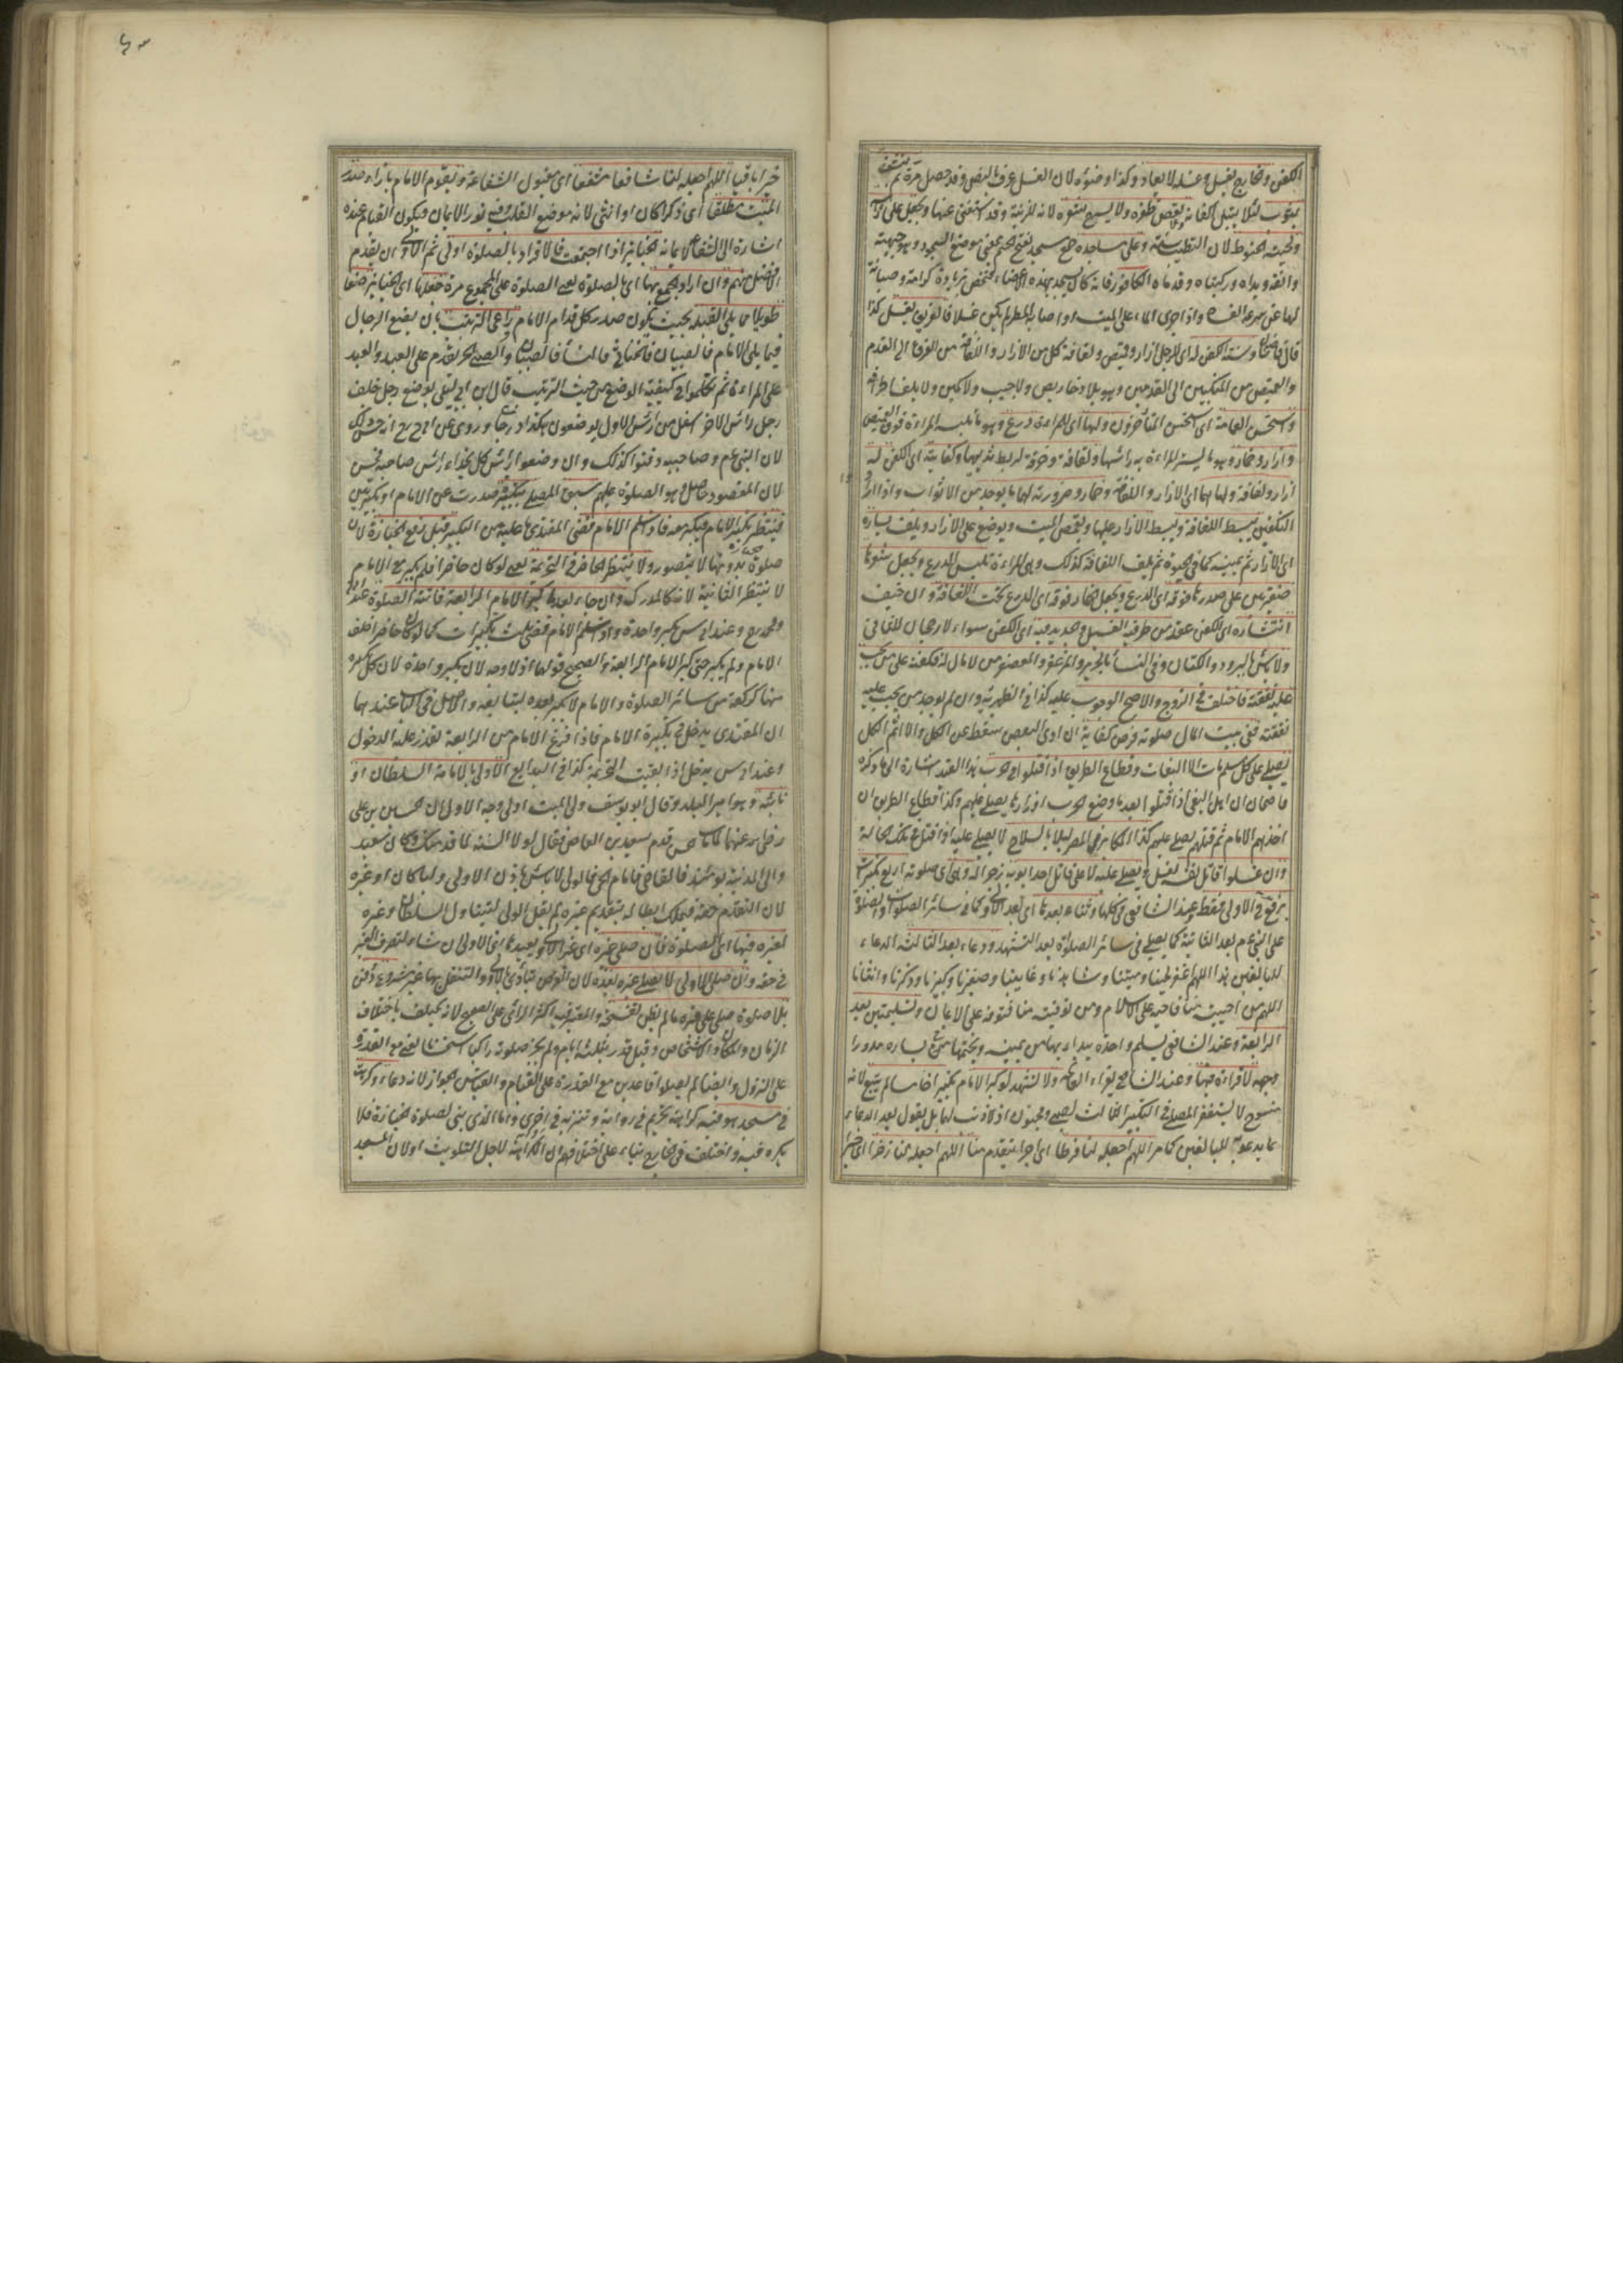 الكفن وخارج لغسل وغسله لا يعاد وكذا وضوءه لان الغسل عرف بالنص وقد حصل مرة ثم ينشف
بثوب لئلا يبتل اكفانه ولا يقص ظفره ولا يسرح شعره لانه للزينة وقد استغنى عنها ويجعل على راسه
ولحيته الحنوط لان التطيب سنة وعلى مساجده جمع مسجد بفتح الجيم بمعنى موضع السجود وهو جبهته
وانفه ويداه وركبتاه وقدماه الكافور فانه كان يسجد بهذه الاعضاء فتختص بزيادة كرامة وصيانة
لها عن سرعة الفساد واذا جرى الماء على الميت او اصابه المطر لم يكن غسلا فالغريق يغسل كذا
قال قاضيخان وسنة الكفن له اى للرجل ازار وقميص ولفافة كل من الازار واللفافة من القرن الى القدم
والقميص من المنكبين الى القدمين وهو بلا دخاريص ولا جيب ولا كمين ولا يلف اطرافه
واستحسن العمامة اى استحسن المتأخرون ولها اى للمراءة درع وهو ما تلبسه المراءة فوق القميص
وازار وخمار وهو ما يستر المراءة به راسها ولفافة وخرقة لربط ثدييها وكفايته اى الكفن له
ازار ولفافة ولها اى الازار واللفافة وخمار وضرورته لهما ما يوجد من الاثواب واذا ارادوا
التكفين يبسط اللفافة ويبسط الازار عليها ويقمص الميت ويوضع على الازار ويلف يساره
اى الازار ثم يمينه كما فى الحيوة ثم يلف اللفافة كذلك وهى المراءة تلبس الدرع ويجعل شعرها
ضفيرتين على صدرها فوقه اى الدرع ويجعل الخمار فوقه اى الدرع تحت اللفافة وان خيف
انتشاره اى الكفن عقد من طرفيه الغسيل والجديد فيه اى الكفن سواء لا رجحان للثانى
ولا باس بالبرود والكتان وفى النساء بالحرير والمزعفر والمعصفر من لا مال له فكفنه على من تجب
عليه نفقته فاختلف فى الزوج والاصح الوجوب عليه كذا فى الظهيرية وان لم يوجد من يجب عليه
نفقته ففى بيت المال صلوته فرض كفاية ان ادى البعض سقط عن الكل والا اثم الكل
يصلى على كل مسلم مات الا البغات وقطاع الطريق اذا قتلوا فى الحرب بهذا القيد اشارة الى ما ذكره
قاضيخان ان اهل البغى اذا قتلوا بعد ما وضع الحرب اوزارها يصلى عليهم وكذا قطاع الطريق ان
اخذهم الامام ثم قتلهم يصلى عليهم كذا المكابر فى المصر ليلا بالسلاح لا يصلى عليه اذا قتل فى تلك الحالة
وان غسلوا قاتل نفسه يغسل ويصلى عليه لا على قاتل احد ابويه زجرا له وهى اى صلوته اربع تكبيرات
يرفع فى الاولى فقط وعند الشافعى فى كلها وثناء بعدها اى بعد الاولى كما فى سائر الصلوات والصلوة
على النبى عم بعد الثانية كما يصلى فى سائر الصلواة بعد التشهد ودعاء بعد الثالثة الدعاء
للبالغين هذا اللهم اغفر لحينا وميتنا وشاهدنا وغايبنا وصغيرنا وكبيرنا وذكرنا وانثانا
اللهم من احييته منا فاحيه على الاسلام ومن توفيته منا فتوفه على الايمان وتسليمتين بعد
الرابعة وعند الشافعى يسلم واحدة يبداء بها من يمينه ويختمها فى يساره مدورا
وجهه لا قراءة فيها وعند الشافعى يقراء الفاتحة ولا تشهد لو كبر الامام بتكبير خامسا لم يتبع لانه
منسوخ لا يستغفر المصلى فى التكبير الثالث لصبى ومجنون اذ لا ذنب لهما بل يقول بعد الدعاء
بما يدعو به للبالغين كما مر اللهم اجعله لنا فرطا اى اجرا يتقدم منا اللهم اجعله لنا ذخرا اى خيرا
خيرا باقيا اللهم اجعله لنا شافعا مشفعا اى مقبول الشفاعة ويقوم الامام بازاء صدر
الميت مطلقا اى ذكرا كان او انثى لانه موضع القلب وفيه نور الايمان فيكون القيام عنده
اشارة الى الشفاعة لايمانه الجنايز اذا اجتمعت فالافراد بالصلوة اولى ثم الاولى ان يقدم
الافضل منهم وان اراد الجمع بها اى بالصلوة يعنى الصلوة على المجموع مرة جعلها اى الجنايز صفا
طويلا مما يلى القبلة بحيث يكون صدر كل قدام الامام راعى الترتيب بان يضع الرجال
فيما يلى الامام فالصبيان فالخناثى فالنساء فالصبيات والصبى الحر يقدم على العبد والعبد
على المراءة ثم تكلموا فى كيفية الوضع من حيث الترتيب قال ابن ابى ليلى يوضع رجل خلف
رجل رائس الاخر اسفل من رائس الاول يوضعون هكذا درجا وروى عن ابى ح رح انه حسن ذلك
لان النبى عم وصاحبيه دفنوا كذلك وان وضعوا رائس كل بحذاء رائس صاحبه فحسن
لان المقصود حاصل وهو الصلوة عليهم سبق المصلى بتكبيرة صدرت عن الامام او تكبيرتين
فينتظر تكبير الامام فيكبر معه فاذا سلم الامام قضى المقتدى ما عليه من التكبير قبل رفع الجنازة لان
صلوة الجنازة بدونها لا يتصور ولا ينتظر الحاضر فى التحريمة يعنى لو كان حاضرا فلم يكبر مع الامام
لا ينتظر الثانية لانه كالمدرك وان جاء بعد ما كبر الامام الرابعة فاتته الصلوة عند ابى ح
ومحمد رح وعند ابى س يكبر واحدة واذا سلم الامام قضى ثلث تكبيرات كما لو كان حاضرا خلف
الامام ولم يكبر حتى كبر الامام الرابعة والصحيح قولهما اذ لا وجه لان يكبر واحدة لان كل تكبيرة
منها كركعة من سائر الصلوة والامام لا يكبر بعده ليتابعه والاصل فى الباب عندهما
ان المقتدى يدخل فى تكبيرة الامام فاذا فرغ الامام من الرابعة تعذر عليه الدخول
وعند ابى س يدخل اذا بقيت التحريمة كذا فى البدايع الاولى بالامامة السلطان او
نائبه وهو امير البلد وقال ابو يوسف ولى الميت اولى وجه الاول ان حسين بن على
رضى الله عنهما لما مات حسن قدم سعيد بن العاص فقال لولا السنة لما قدمتك وكان سعيد
والى المدينة يومئذ فالقاضى فامام الحى فالولى لا باس باذن الاولى وليا كان او غيره
لان التقدم حقه فيملك ابطاله بتقديم غيره لم يقل الولى ليتناول السلطان وغيره
لغيره فيها اى الصلوة فان صلى غيره اى غير الاولى يعيدها اى الاولى ان شاء لتصرف الغير
فى حقه وان صلى الاولى لا يصلى غيره بعده لان الفرض تأدى بالاول والتنفل بها غير مشروع دفن
بلا صلوة صلى على قبره ما لم يظن تفسخه والمعتبر فيه اكثر الرائى على الصحيح لانه يختلف باختلاف
الزمان والمكان والاشخاص وقيل قدر بثلثة ايام ولم يجز صلوته راكبا استحسانا يعنى مع القدرة
على النزول وايضا لم يصلوا قاعدين مع القدرة على القيام والقياس الجواز لانه دعاء وكرهت
فى مسجد هو فيه كراهة تحريم فى رواية وتنزيه فى اخرى واما الذى بنى لصلوة الجنازة فلا
يكره فيه واختلف فى الخارج بناء على اختلافهم ان الكراهة لاجل التلويث او لان المسجد